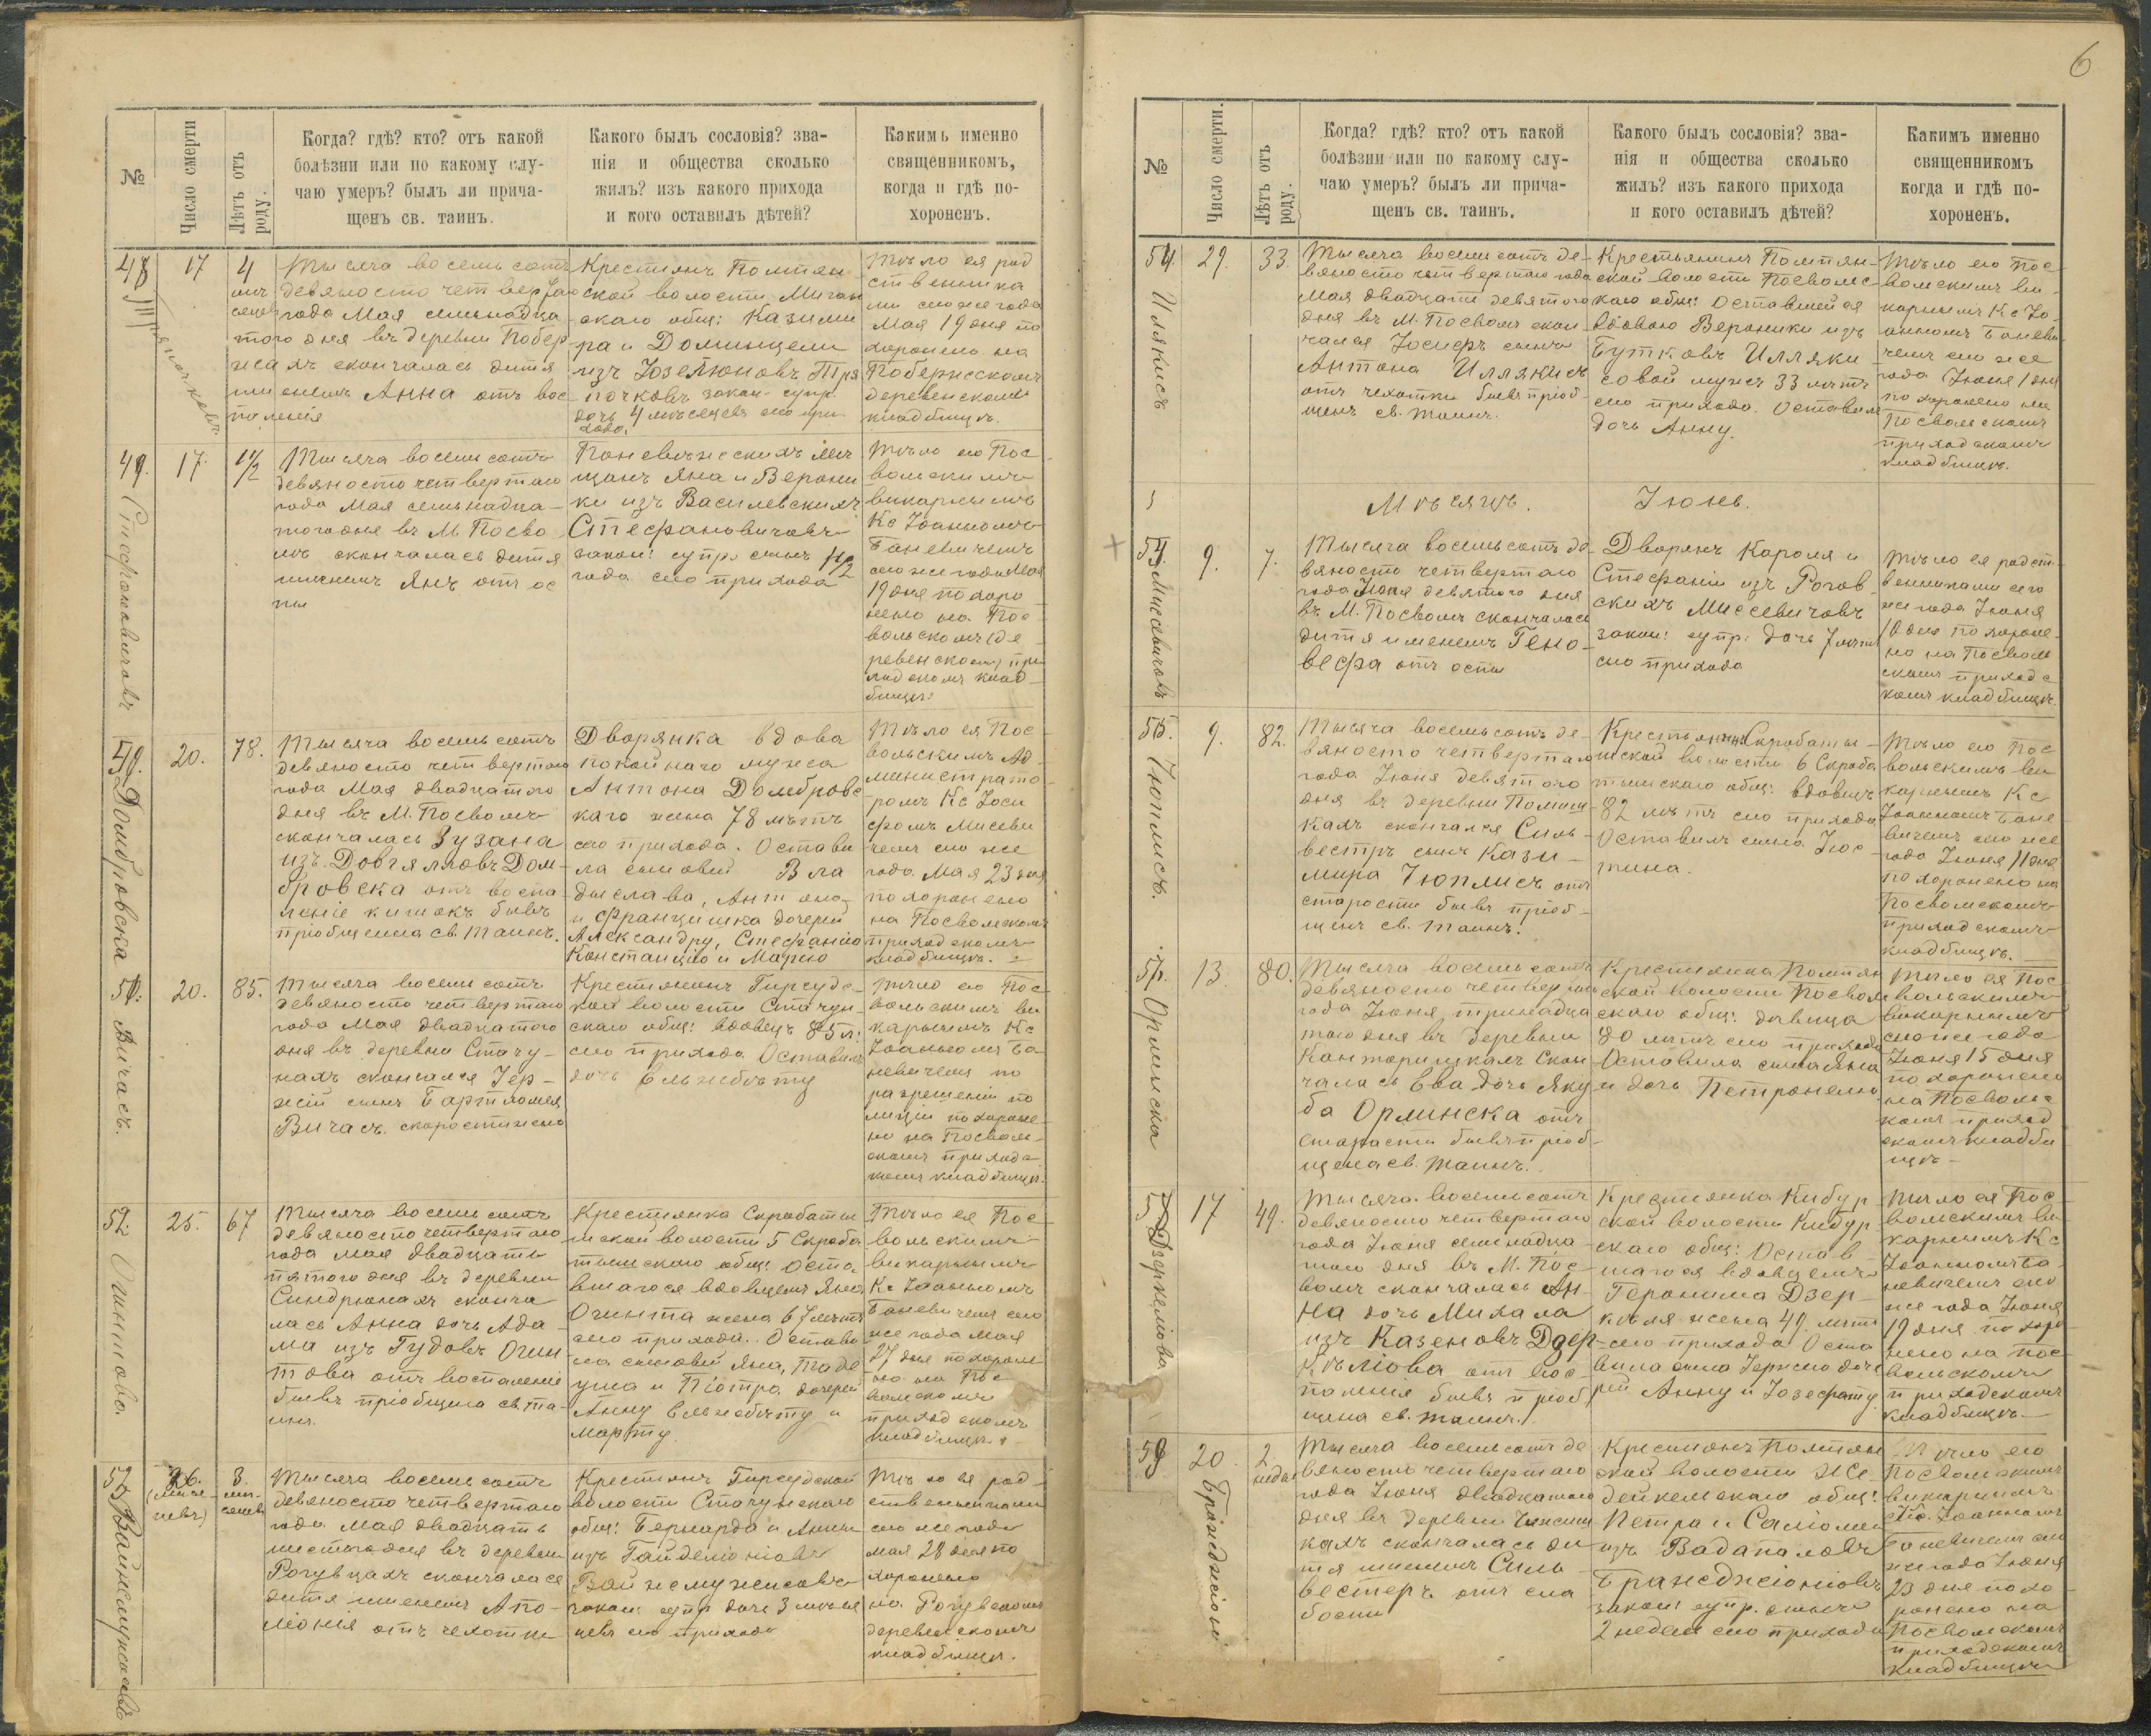 №
Число смерти
Лѣтъ отъ роду.
Когда? гдѣ? кто? отъ какой
болѣзни или по какому слу-
чаю умеръ? былъ ли прича-
щенъ св. таинъ.
Какого былъ сословія? зва-
нія и общества сколько
жилъ? изъ какого прихода
и кого оставилъ дѣтей?
Какимъ именно
священникомъ,
когда и гдѣ по-
хороненъ.
48
17
4
Тысяча восемьсотъ
девяносто четвертаго
года Мая семьнадца
того дня въ деревни Побер
жахъ скончалась дитя
именемъ Анна отъ вос
паленія
Крестянъ Помпян
ской волости Миган
скаго общ: Казими
ра и Доминцели
изъ Іозелюновъ Тря
почковъ закон. супр.
дочь 4 мѣсецевъ сего при
хода.
Тѣло ея род
ственника
ми сего же года
Мая 19 дня по
хоронено на
Побержескомъ
деревенскомъ
кладбищѣ.
49.
Стефановичовъ
17.
1 1/2
Тысяча восемьсотъ
девяносто четвертаго
года Мая семьнадца-
того дня въ М. Посво
лѣ скончалась дитя
именемъ Янъ отъ ос
пы
Поневѣжескихъ мѣ
щанъ Яна и Верони
ки изъ Василевскихъ
Стефановичовъ
закон: супр. сынъ 1 1/2
года сего прихода
Тѣло его Пос
вольскимъ
викарнымъ
Кс Іоанномъ
Баневичемъ
сего же года Мая
19 дня похоро
нено на Пос-
вольскомъ де
ревенскомъ при
ходскомъ клад-
бищѣ:
Домбровска
20.
78.
Тысяча восемьсотъ
девяносто четвертаго
года Мая двадцатого
дня въ М. Посволѣ
скончалась Зузана
изъ Довгялловъ Дом-
бровска отъ воспа
леніе кишокъ бывъ
пріобщенна св. таинъ.
Дворянка вдова
покойнаго мужа
Антона Домбровс
каго жена 78 лѣтъ
сего прихода. Остави
ла сыновей Вла
дыслава, Антона
и Францишка дочерей
Александру, Стефанію
Констанцію и Марію
Тѣло ея Пос-
вольскимъ Ад
министрато-
ромъ Кс Іоси
фомъ Мисеви
чемъ сего же
года Мая 23 дня
похоронено
на Посвольскомъ
приходскомъ
кладбищѣ.
Вичасъ.
20.
85.
Тысяча восемьсотъ
девяносто четвертаго
года Мая двадцатого
дня въ деревни Стачу-
нахъ скончался Іер-
жій сынъ Бартломея
Вичасъ. скоропостижно
Крестянинъ Гирсудс-
кой волости Стачун-
скаго общ: вдовецъ 85 л:
сего прихода Оставилъ
дочь Ельжбѣту
Тѣло его Пос
вольскимъ ви
карнымъ Кс
Іоанномъ Ба
невичемъ по
разрешеніи по
лиціи похороне-
но на Посволь-
скомъ приходс-
комъ кладбищѣ.
52.
Огинтова.
25.
67
Тысяча восемьсотъ
девяносто четвертаго
года Мая двадцать
пятого дня въ деревни
Синдрюнахъ сконча
лась Анна дочь Ада-
ма изъ Гудовъ Огин
това отъ воспаленіе
бывъ пріобщена св. та-
инъ.
Крестянка Скробаты
шской волости 5 Скроба
тышскаго общ: Оста
вшагося вдовцемъ Яна
Огинта жена 67 лѣтъ
сего прихода. Остави
ла сыновей Яна, Таде
уша и Піотра, дочерей
Анну Ельжбѣту и
Марту.
Тѣло ея Пос-
вольскимъ
викарнымъ
Кс Іоанномъ
Баневичемъ сего
же года Мая
27 дня похороне
но на Пос
вольскомъ
приходскомъ
кладбищѣ.
Вайжмужисовъ
26.
3.
Тысяча восемьсотъ
девяносто четвертаго
года Мая двадцать
шестого дня въ деревни
Рогувцахъ скончалася
дитя именемъ Апо-
лонія отъ чехотки
Крестянъ Гирсудской
волости Стачунскаго
общ: Бернарда и Анны
изъ Гайделіоніовъ
Вайжмужисовъ
закон: супр дочь 3 мѣся
цевъ сего прихода
Тѣло ея род
ственниками
сего же года
мая 28 дня по
хоронено
на Рогувскомъ
деревенскомъ
кладбищѣ.
6
№
Число смерти.
Лѣтъ отъ роду.
Когда? гдѣ? кто? отъ какой
болѣзни или по какому слу-
чаю умеръ? былъ ли прича-
щенъ св. таинъ.
Какого былъ сословія? зва-
нія и общества сколько
жилъ? изъ какого прихода
и кого оставилъ дѣтей?
Какимъ именно
священникомъ
когда и гдѣ по-
хороненъ.
54.
Илякисъ
29.
33.
Тысяча восемьсотъ де-
вяносто четвертаго года
Мая двадцать девятого
дня въ М. Посволѣ скон-
чался Іосифъ сынъ
Антона Иллякисъ
отъ чехотки бывъ пріоб-
щенъ св. таинъ.
Крестьянинъ Помпян-
ской волости Посвольс-
каго общ: Оставшейся
вдовою Вероники изъ
Бутковъ Илляки
совой мужъ 33 лѣтъ
сего прихода. Оставилъ
дочь Анну.
Тѣло его Пос-
вольскимъ ви-
карнымъ Кс Іо-
анномъ Баневи-
чемъ сего же
года Іюня 1 дня
похоронено на
Посвольскомъ
приходскомъ
кладбищѣ.
Мѣсяцъ. Іюнь.
Мисевичовъ
9.
7.
Тысяча восемьсотъ де-
вяносто четвертаго
года Іюня девятого дня
въ М. Посволѣ скончалась
дитя именемъ Гено-
вефа отъ оспы
Дворянъ Кароля и
Стефаніи изъ Рогов-
скихъ Миссевичовъ
закон: супр: дочь 7 лѣтъ
сего прихода
Тѣло ея родст-
венниками сего
же года Іюня
10 дня похороне-
но на Посволь
скомъ приходс
комъ кладбищѣ.
Тюплисъ.
9.
82.
Тысяча восемьсотъ де-
вяносто четвертаго
года Іюня девятого
дня въ деревни
скончался Силь-
вестръ сынъ Кази-
мира Тюплисъ отъ
старости бывъ пріоб-
щенъ св. таинъ.
Крестьянинъ Скробаты-
шской волости 6 Скроба
тышскаго общ: вдовецъ
82 лѣтъ сего прихода
Оставилъ сына Іюс-
тина.
Тѣло его Пос
вольскимъ ви
карнымъ Кс
Іоанномъ Бане
вичемъ сего же
года Іюня 11 дня
похоронено на
Посвольскомъ
приходскомъ
кладбищѣ.
Орлинска
13.
80.
Тысяча восемьсотъ
девяносто четвертаго
года Іюня тринадца
того дня въ деревни
Канторишкахъ скон
чалась Ева дочь Яку
ба Орлинска отъ
старости бывъ пріоб-
щена св. таинъ.
Крестянка Помпян
ской волости Посволь
скаго общ: дѣвица
80 лѣтъ сего прихода
Оставила сына Яна
и дочь Петронелю.
Тѣло ея Пос
вольскимъ
викарнымъ
сего же года
Іюня 15 дня
похоронено
на Посвольс
комъ приход
скомъ кладби
щѣ-
Дзеркелюва
17
49.
Тысяча восемьсотъ
девяносто четвертаго
года Іюня семьнадца-
того дня въ М. Пос-
волѣ скончалась Ан-
на дочь Михала
изъ Казеновъ Дзер-
кѣліова отъ вос-
паленія бывъ пріоб
щена св. таинъ.
Крестянка Кибур
ской волости Кибур
скаго общ: Остав
шагося вдовцемъ
Геронима Дзер-
кѣля жена 49 лѣтъ
сего прихода Оста
вила сына Іержего доче
рей Анну и Іозефату
Тѣло ея Пос
вольскимъ ви
карнымъ Кс
Іоанномъ Ба-
невичемъ сего
же года Іюня
19 дня похоро
нено на Пос
вольскомъ
приходскомъ
кладбищѣ-
20.
2.
недѣл
Тысяча восемьсотъ де
вяносто четвертаго
года Іюня двадцатого
дня въ деревни
кахъ скончалась ди
тя именемъ Силь-
вестеръ отъ сла
бости
Крестянъ Помпян
ской волости Же-
дейкелскаго общ:
Петра и Саломеи
изъ Вадапаловъ
Бражджіоніовъ
закон: супр. сынъ
2 недели сего прихода
Тѣло его
Посвольскимъ
викарнымъ
Кс. Іоанномъ
Баневичемъ сего
же года Іюня
23 дня похо
ронено на
Посвольскомъ
приходскомъ
кладбищѣ